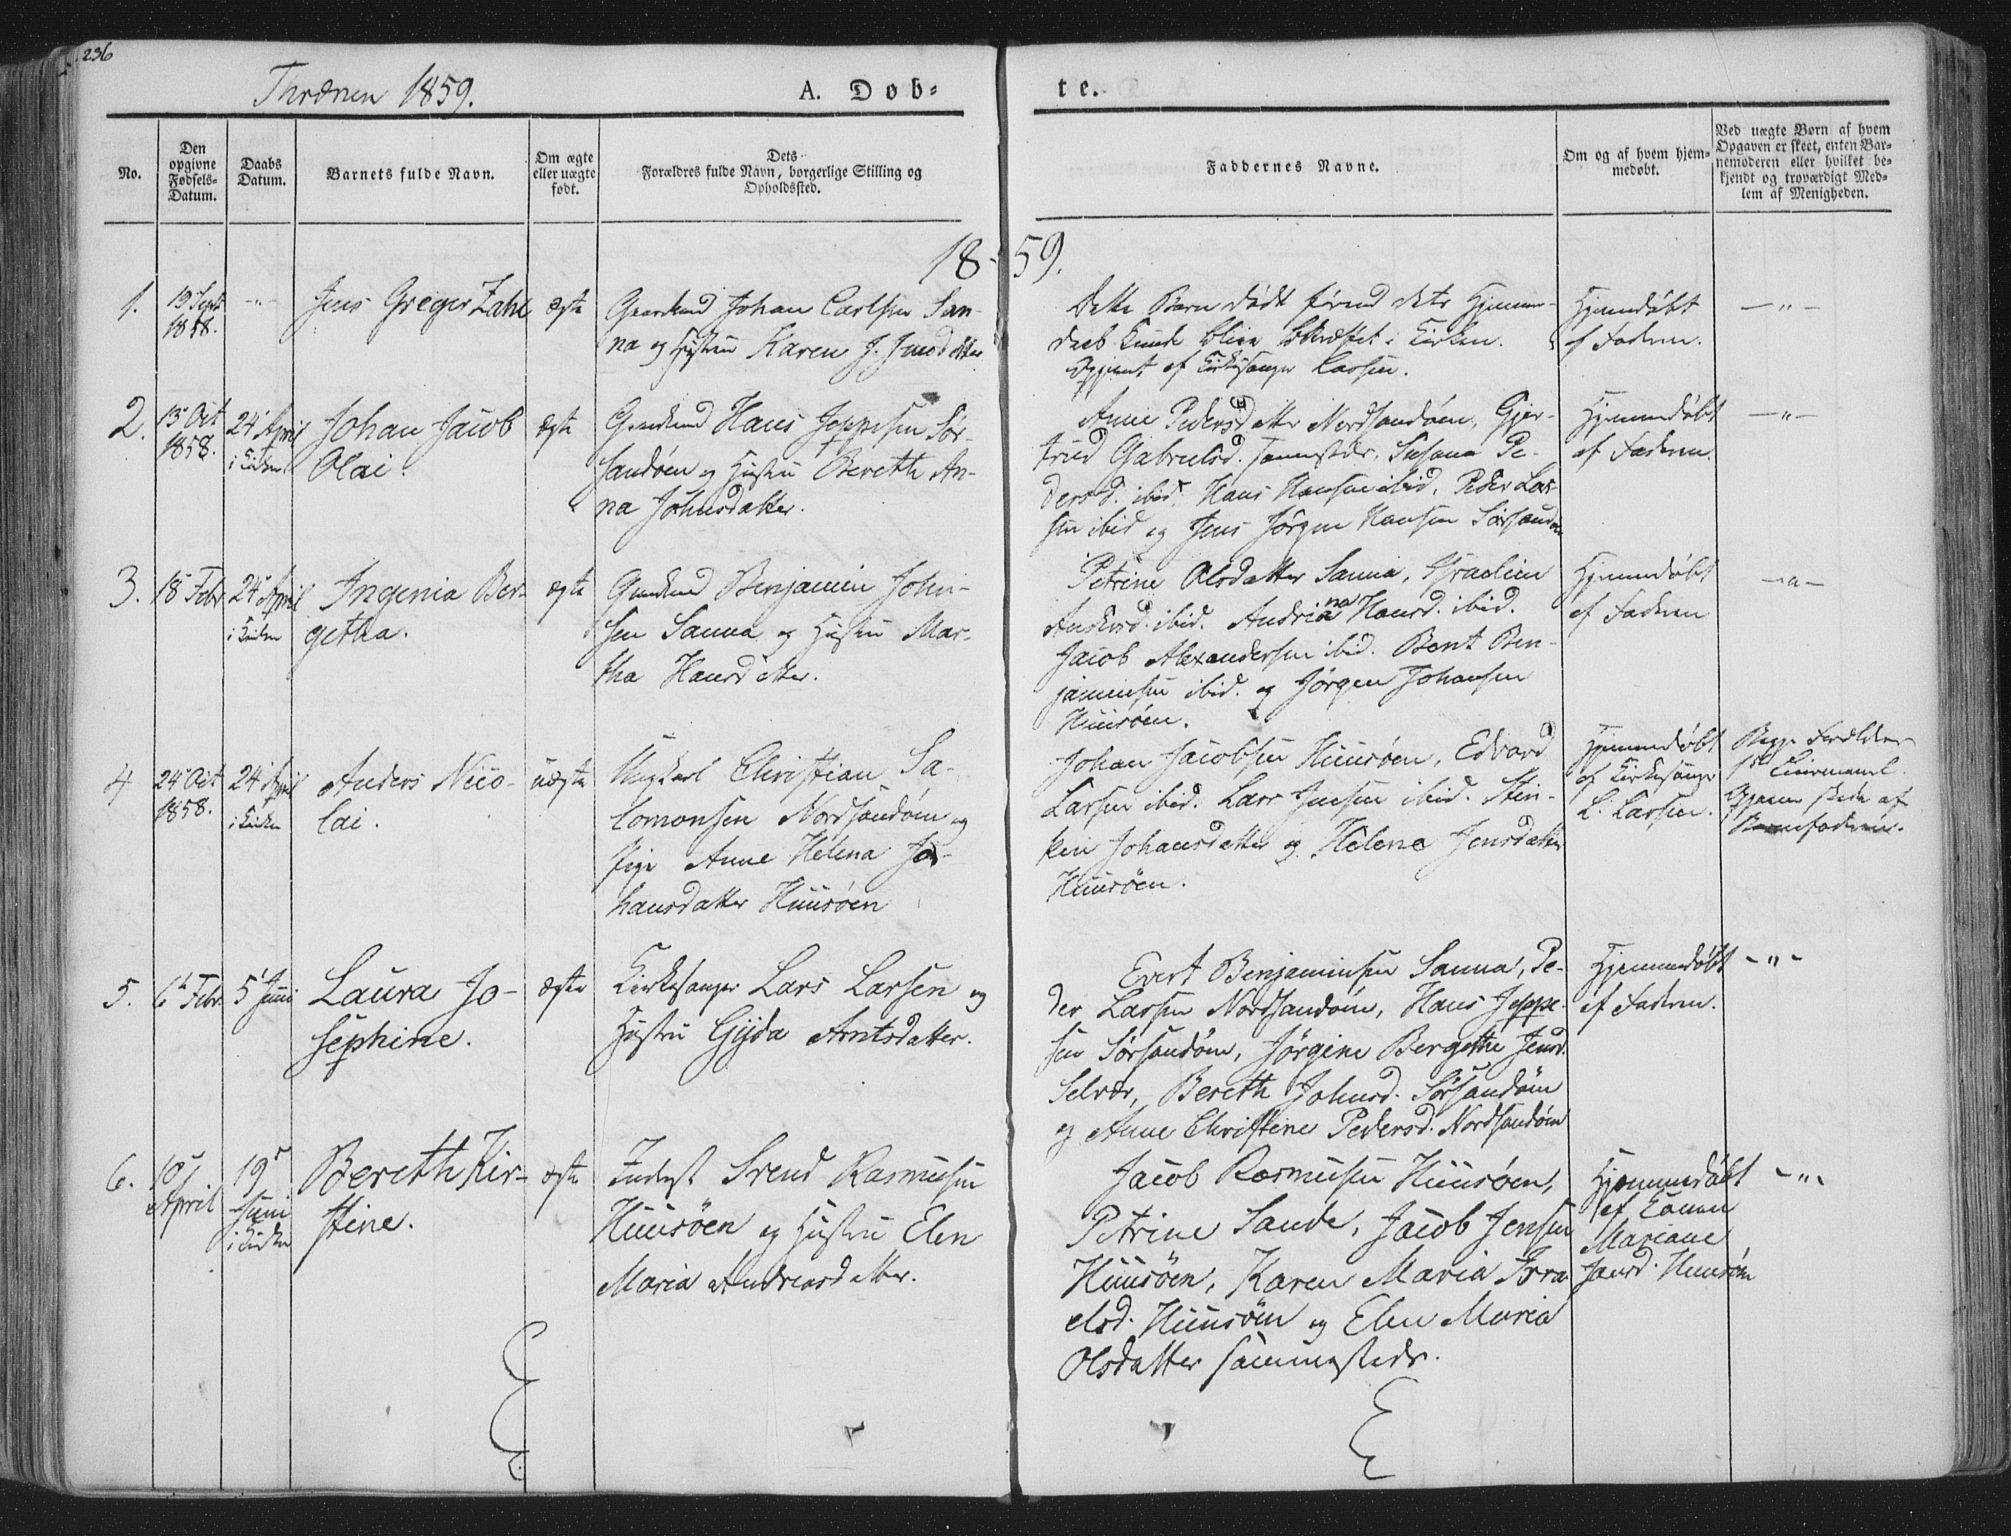 236
Thrænen 1859.
A. Döb-
te.
No.
Den
opgivne
Fødsels-
Datum.
Daabs
Datum.
Barnets fulde Navn.
Om ægte
eller uægte
født.
Dets
Forældres fulde Navn, borgerlige Stilling og
Opholdssted.
Faddernes Navne.
Om og af hvem hjem-
medøbt.
Ved uægte Børn af hvem
Opgaven er skeet, enten Bar-
nemoderen eller hvilket be-
kjendt og troværdigt Med-
lem af Menigheden.
18-59.
1.
19 Septr
1858.
-"-
Jens Greger Zahl
ægte
Gaardmd Johan Carlsen San-
na og Hustru Karen J. Jensdatter
Dette Barn døde førend dets Hjemme-
daab kunde blive bekræftet i Kirken.
af Kirkesanger Larsen.
Hjemmedøbt
af Faderen.
-"-
2.
13 Oct
1858.
24 April
i Kirken
Johan Jacob
Olai.
ægte
Gaardmd Hans Jeppesen Sør-
sandøen og Hustru Bereth An-
na Johnsdatter.
Anne Pedersdatter Nordsandøen, Gjer-
trud Gabrielsd. sammesteds, Susana Pe-
dersd. ibid. Hans Hansen ibid. Peder Lar-
sen ibid og Jens Jörgen Hansen Sørsandøen
Hjemmedøbt
af Faderen.
-"-
3.
18 Febr
24 April
i Kirken
Ingenia Ber-
getha.
ægte
Gaardmd Benjamin John-
sen Sanna og Hustru Mar-
tha Hansdatter.
Petrine Olsdatter Sanna, Israeline
Andersd. ibid. Andriana Hansd. ibid.
Jacob Alexandersen ibid. Bent Ben-
jaminsen ibid. og Jörgen Johansen
Huusøen.
Hjemmedøbt
af Faderen
-"-
4
24 Oct
1858.
24 April
i Kirken
Anders Nico-
lai.
uægte
Ungkarl Christian Sa-
lomonsen Nordsandøen og
Pige Anne Helena Jo-
hansdatter Huusøen
Johan Jacobsen Huusøen, Edvard
Larsen ibid. Lars Jensen ibid. Stin-
ken Johansdatter og Helene Jensdatter
Huusøen.
Hjemmedøbt
af Kirkesanger
L. Larsen.
Begge Forældre
1ste Leiermaal.
skede af
Barnefaderen.
5.
6 Febr.
5 Juni
Laura Jo-
sephine.
ægte
Kirkesanger Lars Larsen og
Hustru Gjida Arntsdatter.
Evert Benjaminsen Sanna, Pe-
der Larsen Nordsandøen, Hans Jeppe-
sen Sørsandøen, Jørgine Bergethe Jensd.
Selvær, Bereth Johnsd. Sørsandøen
og Anne Christine Pedersd. Nordsandøen
Hjemmedøbt
af Faderen.
-"-
6.
10
April
19
Juni
i Kirken
Bereth Kir-
stine.
ægte
Inderst Svend Rasmusen
Huusøen og Hustru Elen
Maria Andreasdatter.
Jacob Rasmusen Huusøen,
Petrine Sande, Jacob Jensen
Huusøen, Karen Maria Isra-
elsd. Huusøen og Elen Maria
Olsdatter sammesteds.
Hjemmedøbt
af Konen
Mariane
Jansd. Huusøen
-"-